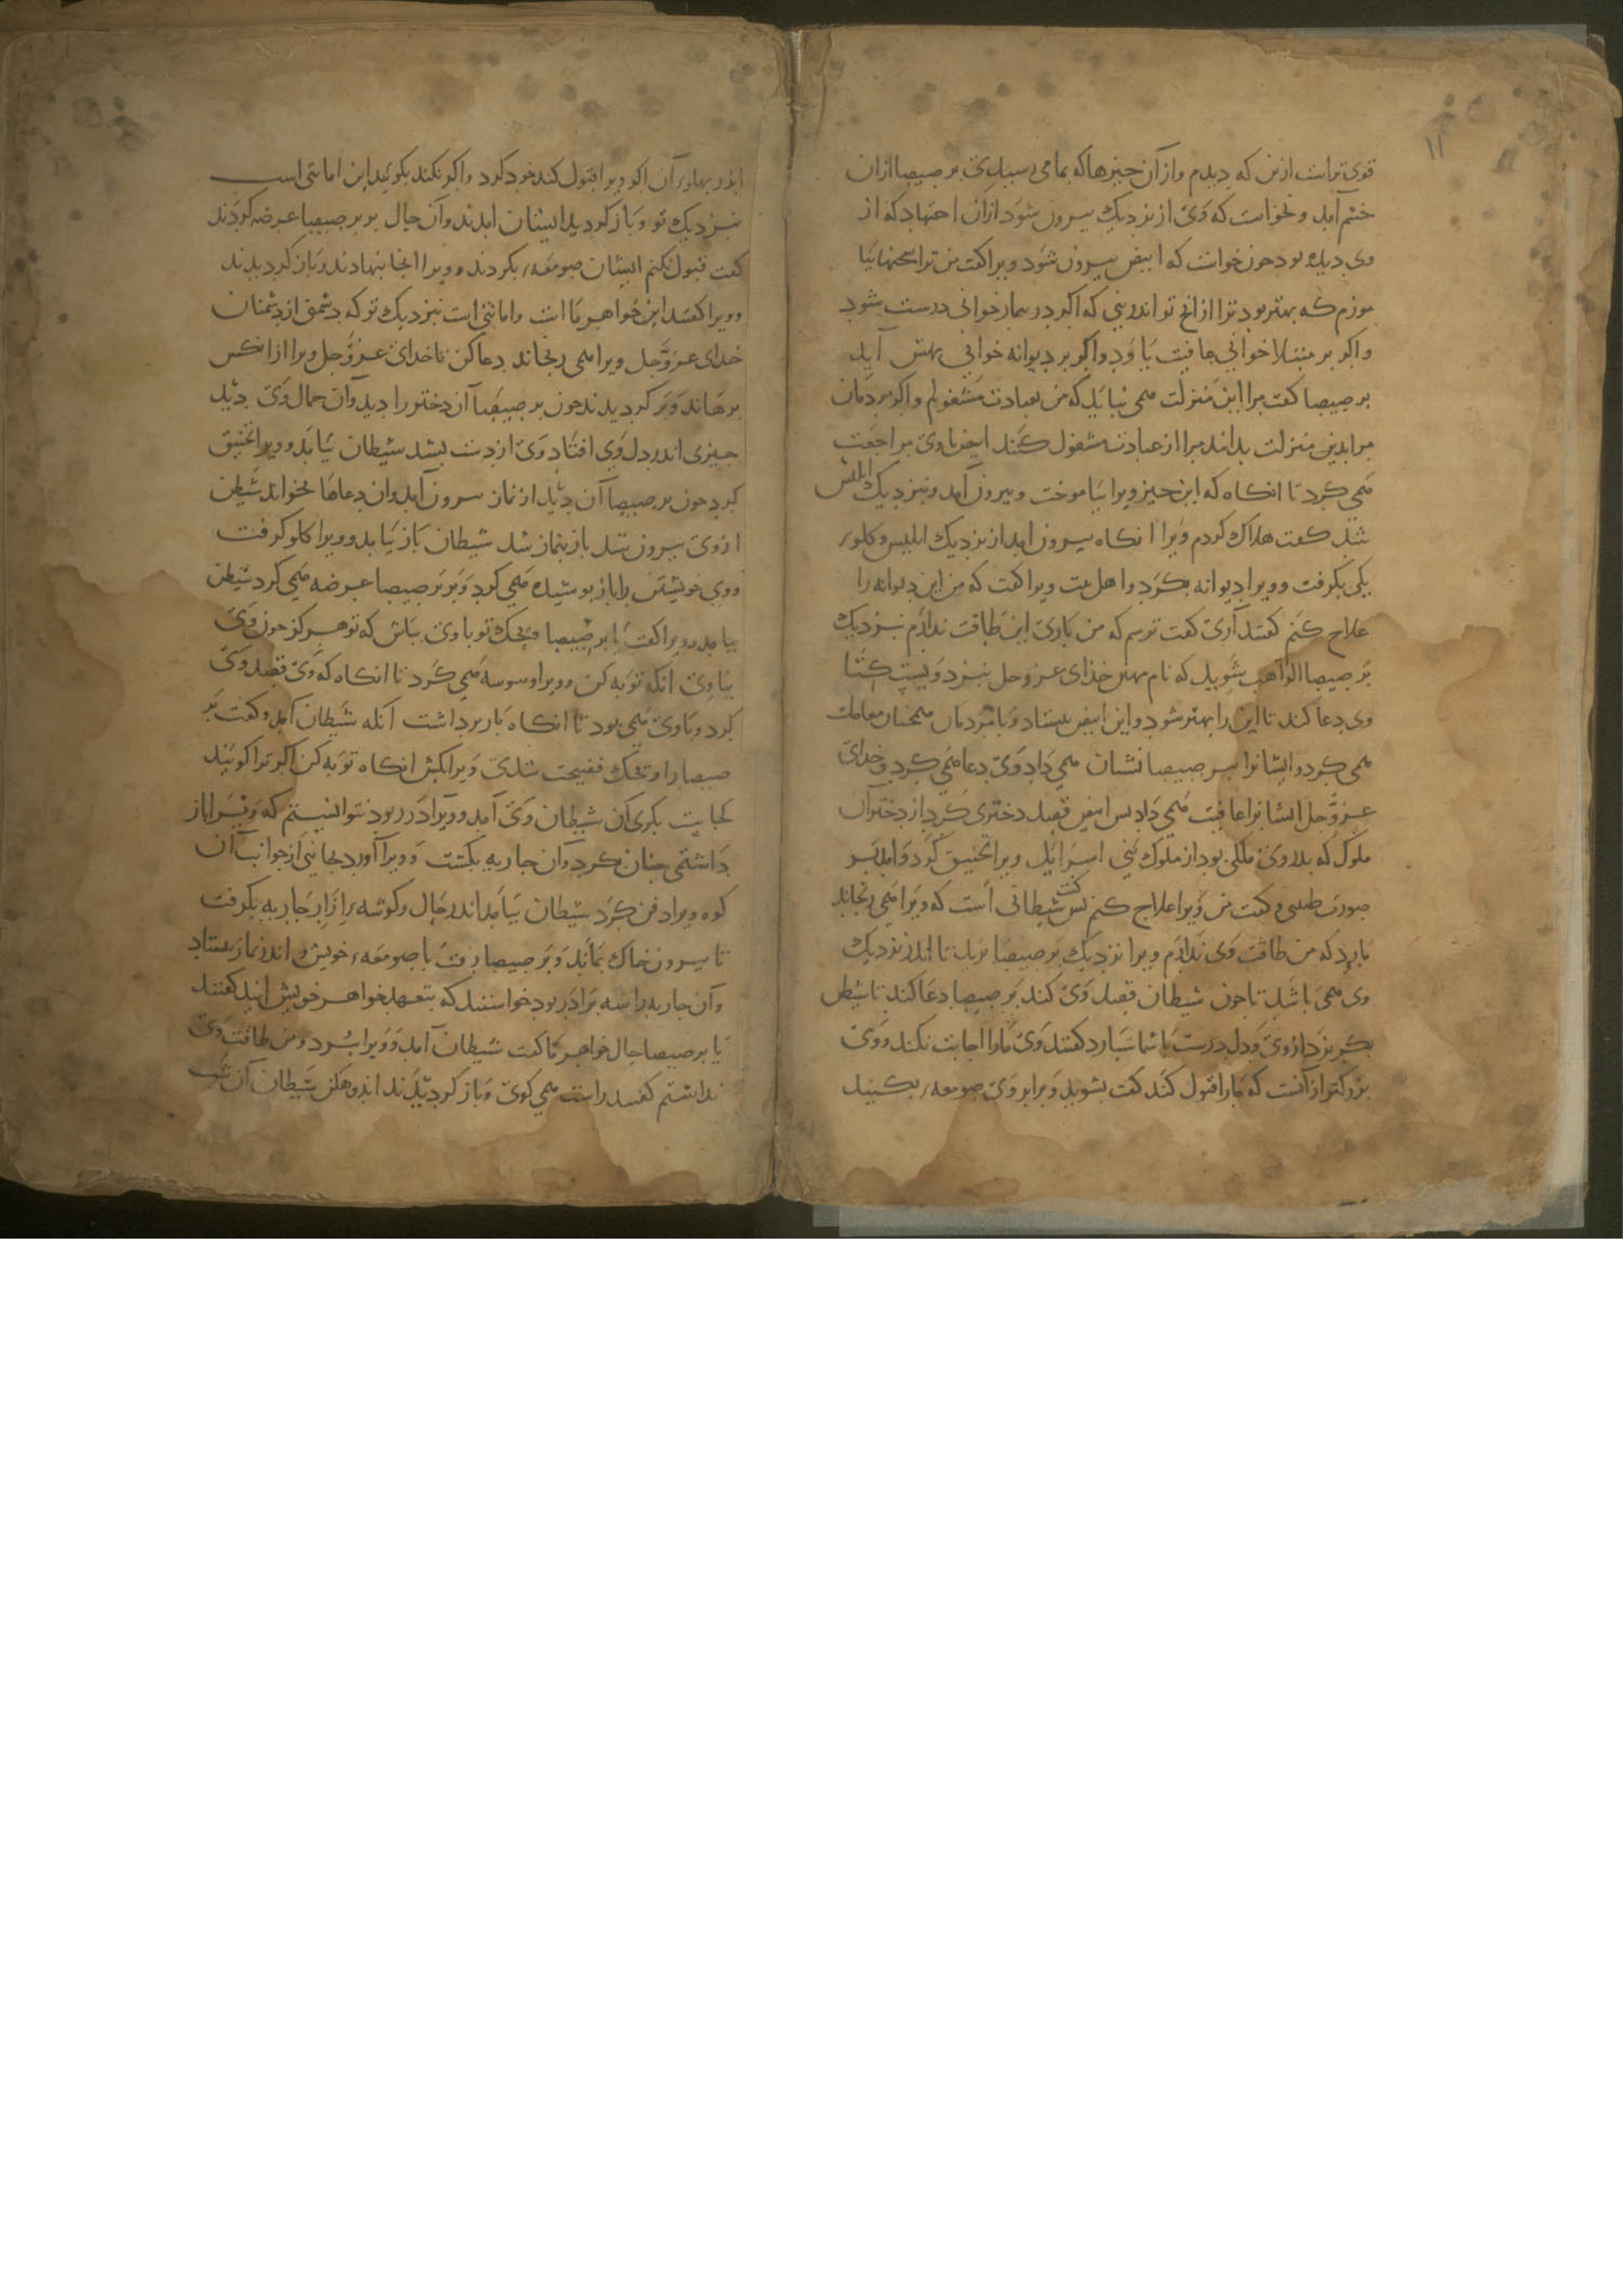 ۱۱
قوی تراست ازین که دیدم و از آن چیزها که بما می رسید برصیصا ازان
خشم آمد و نخواست که وی از نزدیک بیرون شود ازان اجتهاد که از
وی دیده بود چون خواست که ابیض بیرون شود ویرا کفت من ترا سخنها بیا
موزم که بهتر بود ترا از انج تو اندرینی که اکر در بیمار خوانی درست شود
و اکر بر مبتلا خوانی عافیت یاود و اکر بر دیوانه خوانی بهش آید
برصیصا کفت مرا این منزلت می نباید که من بعبادت مشغولم و اکر مردمان
مرا بدین منزلت بدانند مرا از عبادت مشغول کنند ابیض باوی مراجعت
می کرد تا انکاه که این چیز ویرا بیاموخت و بیرون آمد و بنزدیک ابلیس
شد کفت هلاک کردم ویرا انکاه بیرون امد از نزدیک ابلیس و کلوء
یکی بکرفت و ویرا دیوانه بکرد و اهل بیت ویرا کفت که من این دیوانه را
علاج کنم کفتند آری کفت ترسم که من باوی این طاقت ندارم بنزدیک
برصیصا الراهب شوید که نام مهین خدای عز وجل بنزد ویست
وی دعا کند تا این را بهتر شود و این ابیض بیستاد و با مردمان همچنان معاملت
می کرد و ایشانرا ببرصیصا نشان می داد وی دعا می کرد و خدای
عز وجل ایشانرا عافیت می داد پس ابیض قصد دختری کرد از دختران
ملوک که بدان وی ملکی بود از ملوک بنی اسرایل ویرا تخنیق کرد و امد بر
صورت طبیبی و کفت من ویرا علاج کنم پس کفت شیطانی است که ویرا می رنجاند
مارد که من طاقت وی ندارم ویرا نزدیک برصیصا برید تا اندر نزدیک
وی می باشد تا چون شیطان قصد وی کند برصیصا دعا کند تا شیطن
بکریزد از وی و دل درست باشما سپارد کفتند وی مارا اجابت نکند و وی
بزرکتر از آنست که مارا قبول کند کفت بشوید و برابر وی صومعهء بکنید
اندر پهلوء آن اکر ویرا قبول کند خود کرد و اکر نکند بکوئید این امانتی است
بنزدیک تو و باز کردید ایشان امدند و آن حال بر برصیصا عرضه کردند
کفت قبول نکنم ایشان صومعهء بکردند و ویرا انجا بنهادند و باز کردیدند
و ویرا کفتند این خواهر ما است و امانتی است بنزدیک تو که دشمنی از دشمنان
خدای عز وجل ویرا می رنجاند دعا کن تا خدای عز وجل ویرا از انکس
برهاند و بر کردیدند چون برصیصا آن دختر را دید و آن جمال وی بدید
چیزی اندر دل وی افتاد وی از دست بشد شیطان بیامد و ویرا تخنیق
کرد چون برصیصا آن بدید از نماز بیرون آمد و ان دعاها بخواند شیطن
از وی بیرون شد باز بنماز شد شیطان باز بیامد و ویرا کلو کرفت
و وی خویشتن را باز پوشیده می کرد و بر برصیصا عرضه می کرد شیطن
بیامد و ویرا کفت یا برصیصا ویحک تو باوی بباش که تو هرکز چون وی
نیاوی انکه توبه کن و ویرا وسوسه می کرد تا انکاه که وی قصد وی
کرد و باوی می بود تا انکاه بار برداشت انکه شیطان آمد و کفت بر
صیصا را ویحک فضیحت شدی ویرا بکش انکاه توبه کن اکر ترا کویند
کجا است بکوی کان شیطان وی آمد و ویرا در ربود نتوانستم که ویرا باز
داشتمی چنان کرد و آن جاریه بکشت و ویرا آورد بجانبی از جوانب آن
کوه ویرا دفن کرد شیطان بیامد اندر حال و کوشهء از ازار جاریه بکرفت
تا بیرون خاک بماند و برصیصا رفت با صومعهء خویش و اندر نماز بیستاد
و آن جاریه را سه برادر بود خواستند که بتعهد خواهر خویش ایند کفتند
یا برصیصا حال خواهر ما کفت شیطان آمد و ویرا ببرد و من طاقت وی
نداشتم کفتند راست می کوی و باز کردیدند اندوهکن شیطان آن شب